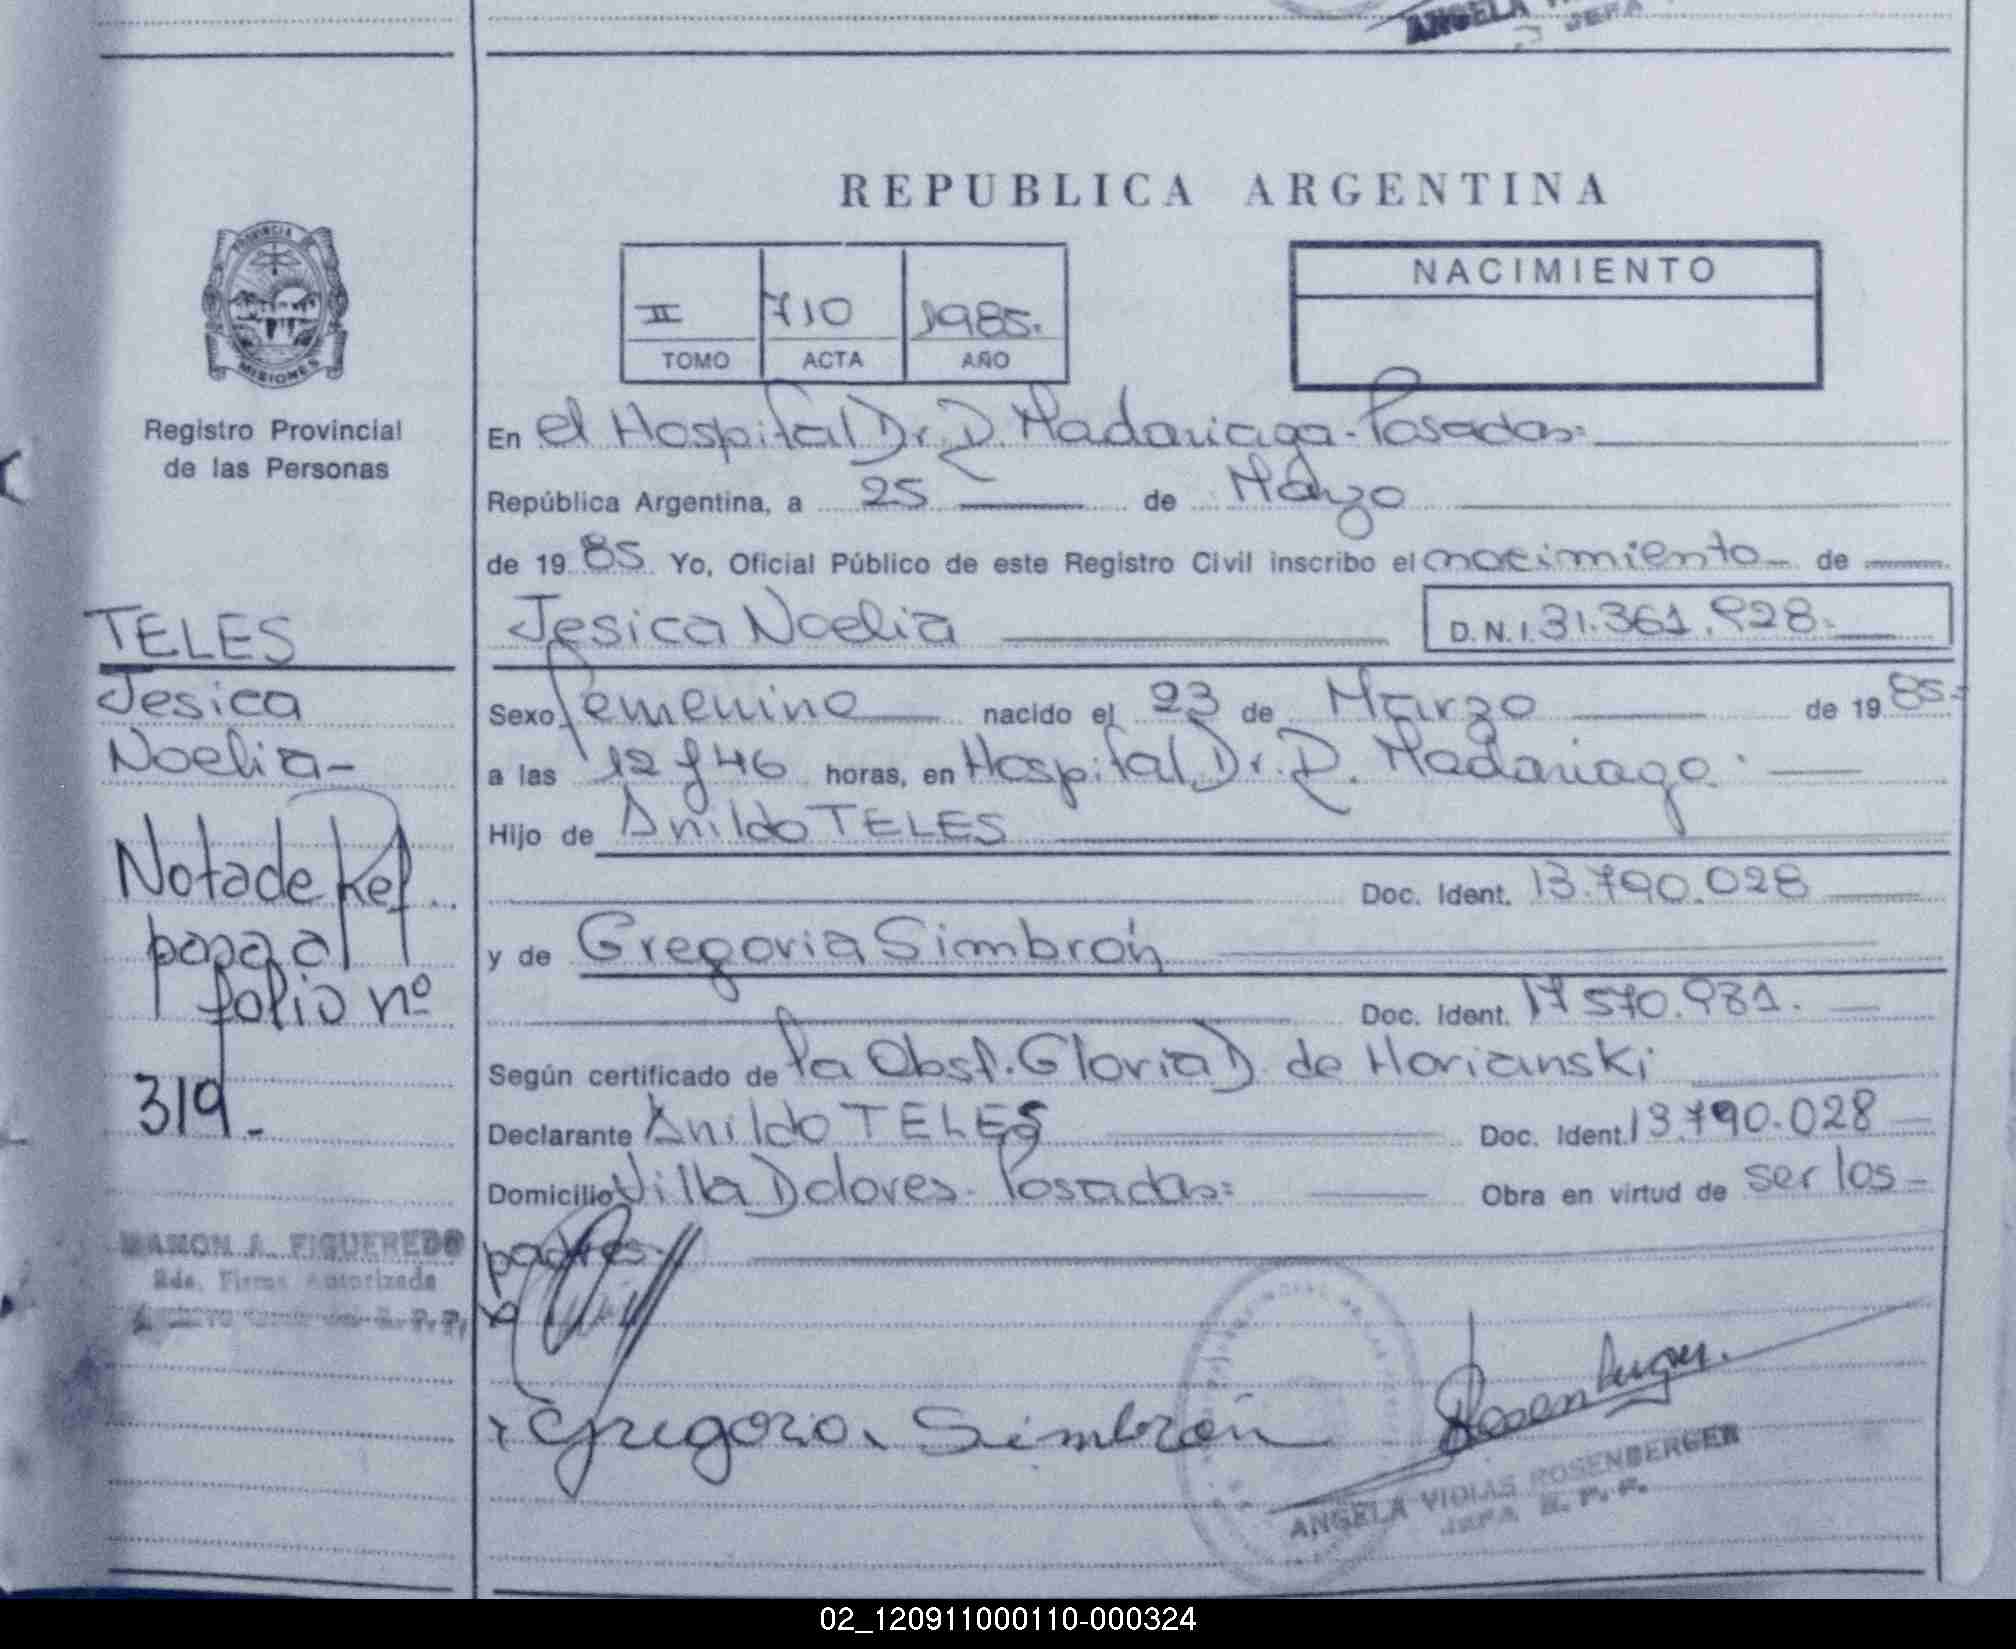 ANGELA
JEFA
REPUBLICA ARGENTINA
PROVINCIA DE
MISIONES
Registro Provincial
de las Personas
II 710 1985.
TOMO ACTA AÑO
NACIMIENTO
En el Hospital Dr. R. Madariaga - Posadas.
República Argentina, a 25 de Marzo
de 19 85 Yo, Oficial Público de este Registro Civil inscribo el nacimiento de
Jesica Noelia D.N.I. 31.361.928.
Sexo femenino nacido el 23 de Marzo de 19 85.
a las 12 y 46 horas, en Hospital Dr. R. Madariaga.
Hijo de Anildo TELES
Doc. Ident. 13.790.028
y de Gregoria Simbrón
Doc. Ident. 17 570.981.
Según certificado de la Obst. Gloria D. de Horianski
Declarante Anildo TELES Doc. Ident. 13.790.028
Domicilio Villa Dolores. Posadas. Obra en virtud de ser los
padres.
Gregoria Simbrón
Rosenberger.
ANGELA VIDIAS ROSENBERGER
JEFA R. P. P.
TELES
Jesica
Noelia-
Nota de Ref.
pasa al
folio nº
319.-
RAMON A. FIGUEREDO
Firma Autorizada
R. P. P.
02_120911000110-000324